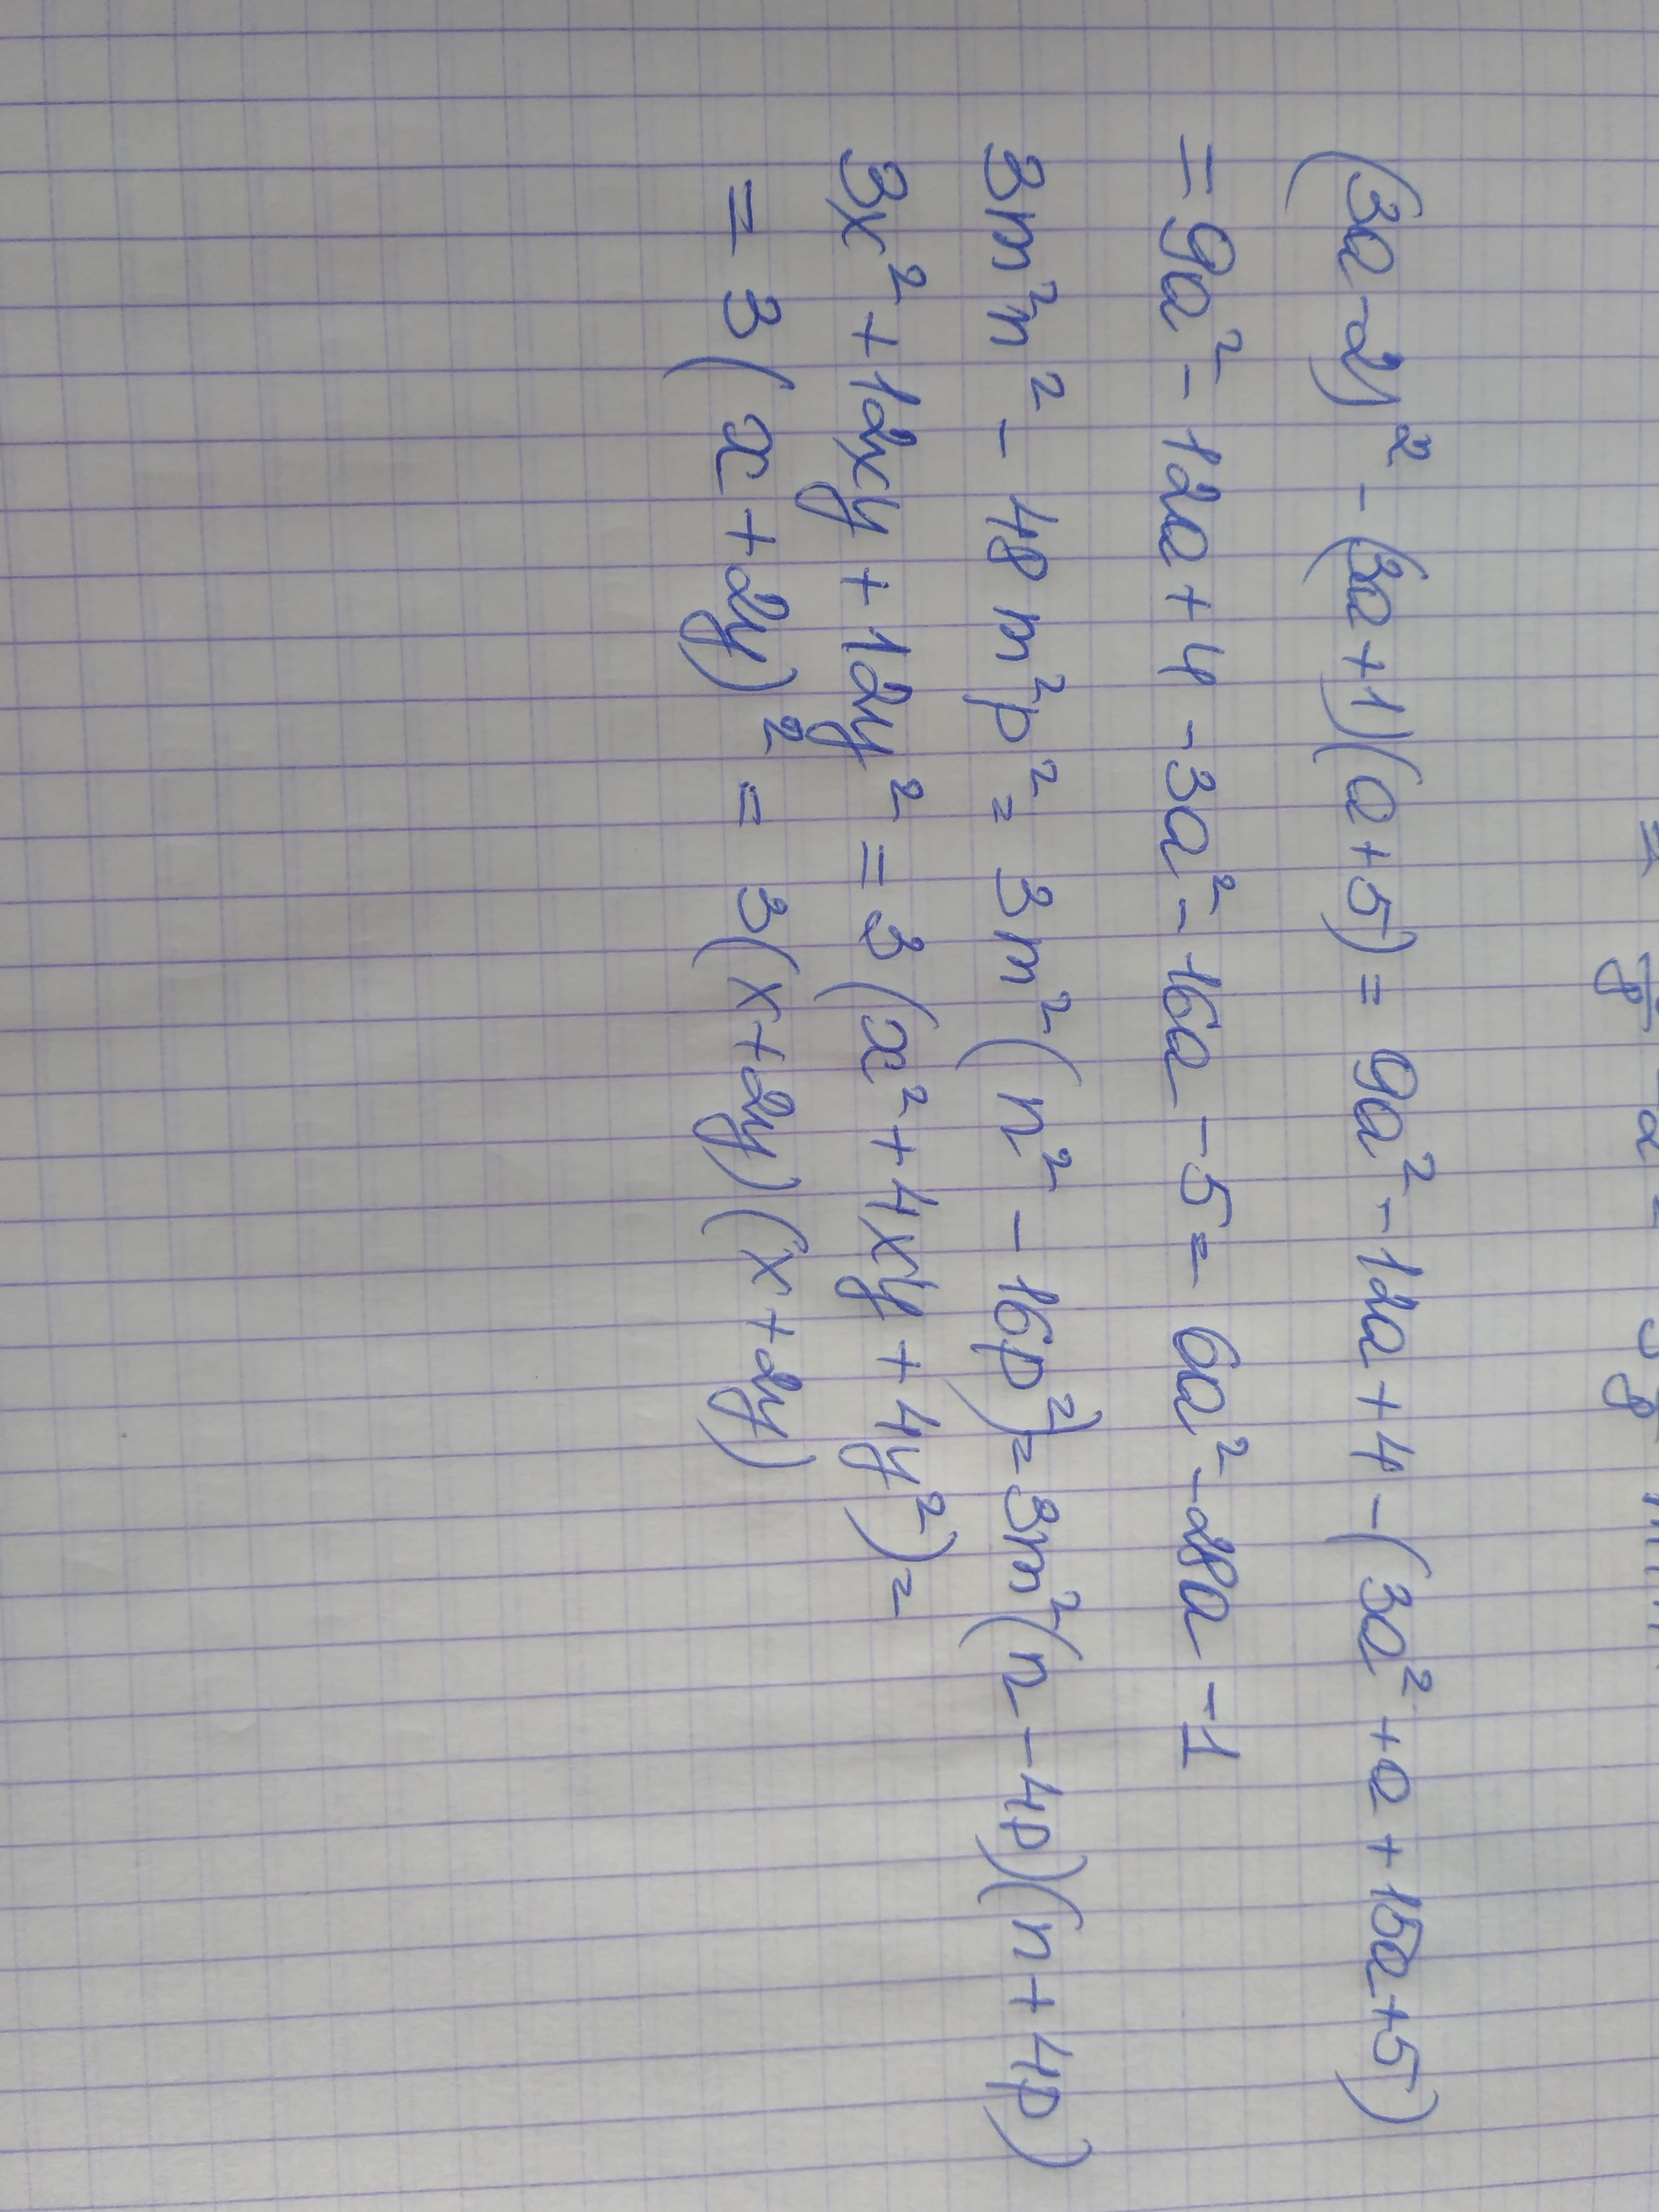 (3a-2)² - (3a+1)(a+5) = 9a² - 12a + 4 - (3a² + a + 15a + 5)
= 9a² - 12a + 4 - 3a² - 16a - 5 = 6a² - 28a - 1
3m²n² - 48m²p² = 3m²(n² - 16p²) = 3m²(n - 4p)(n + 4p)
3x² + 12xy + 12y² = 3(x² + 4xy + 4y²) =
= 3(x + 2y)² = 3(x + 2y)(x + 2y)